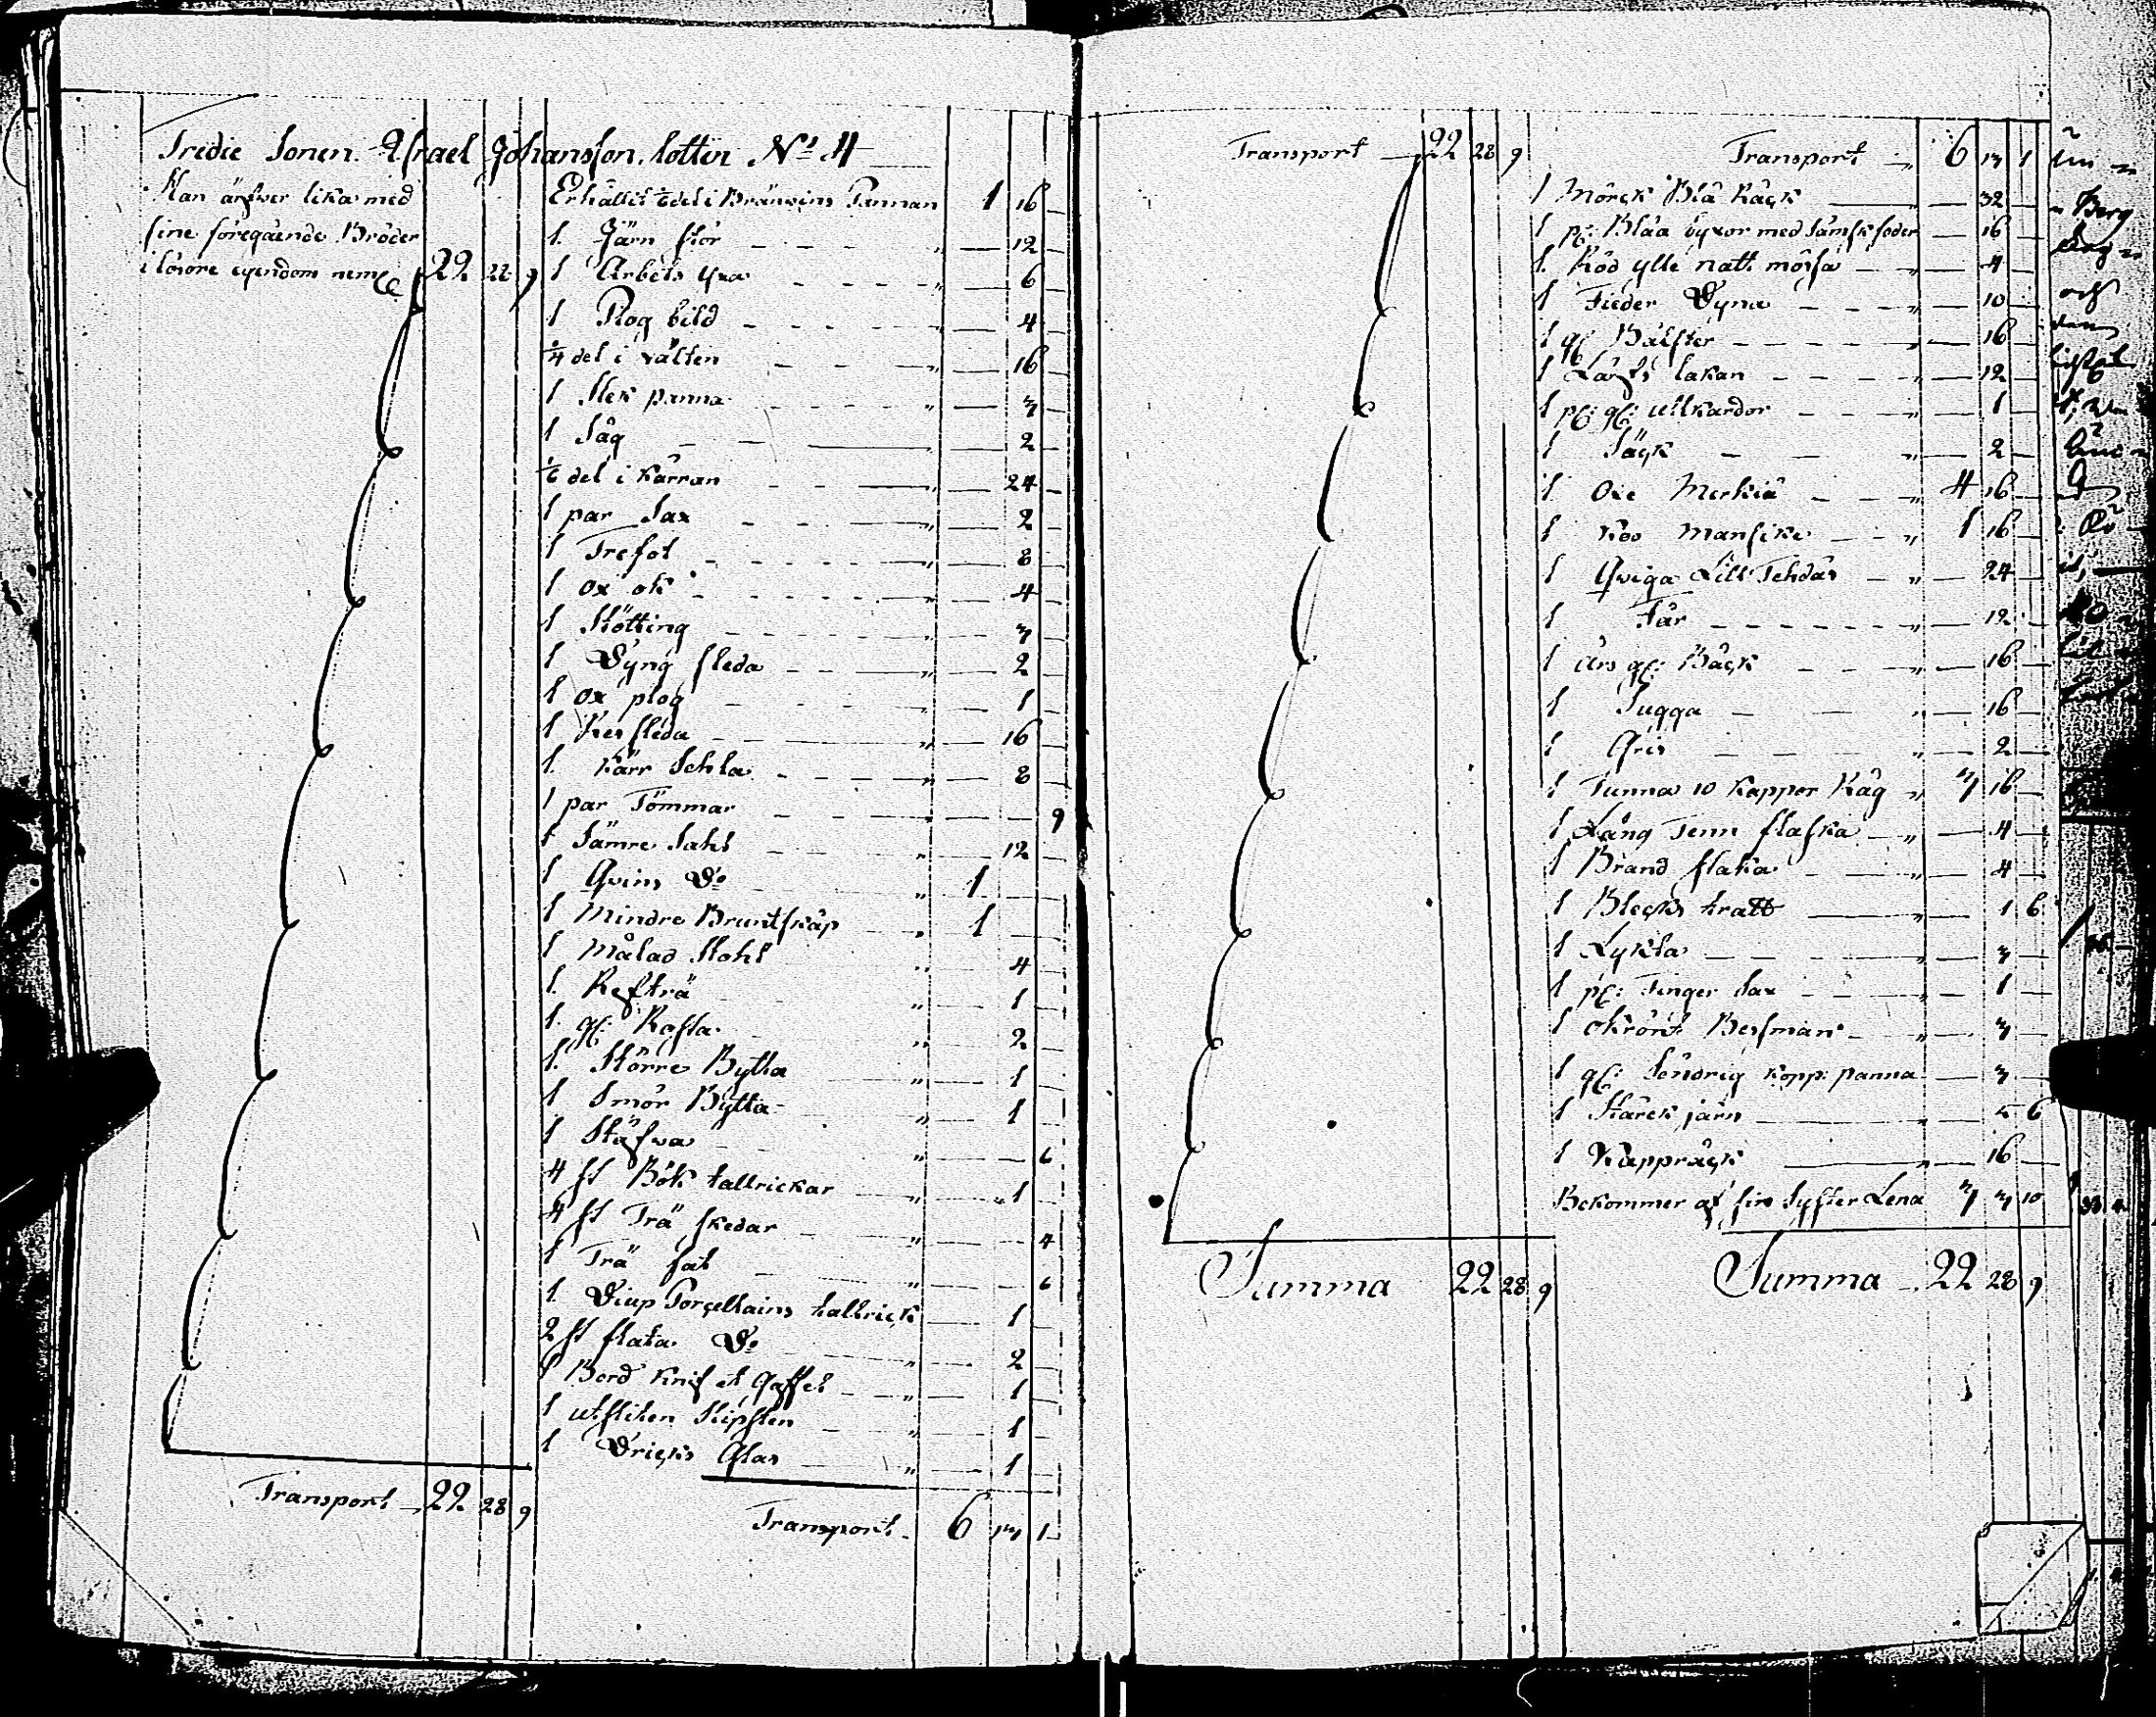 Tredie Sonen. Israel Johansson, lotten No 4
Han ärfwer lika med
sine föregående Bröder
i lösöre egendom neml. 22 28 9
Transport 22 28 9
Erhållit 1/6 del i Bränvins Pannan 1 16
1 Järn stör 12
1 Arbets yxa 6
1 Plog bild 4
1/4 del i välten 16
1 Stek panna 3
1 Såg 2
1/6 del i kärran 24
1 par Sax 2
1 Trefot 8
1 ox ok 4
1 Stötting 3
1 Dyng sleda 2
1 ox plog 1
1 Res sleda 16
1 Kärr Sehla 8
1 par Tömmar 9
1 Sämre Sahl 12
1 Qvins Do 1
1 Mindre Bruntskåp 1
1 Målad Stohl 4
1 Refträ 1
1 gl: Rafsa 2
1 Större Bytta 1
1 Smör Bytta 1
1 Stäfva 6
4 st Bök tallrickar 1
4 st Trä skedar 4
1 Trä fat 6
1 Diup Porcellains tallrick 1
2 st flata Do 2
1 Bord Knif et Gaffel 1
1 utsliten Slipsten 1
1 Dricks Glas 1
Transport 6 13 1
Transport 22 28 9
Summa 22 28 9
Transport 6 13 1
1 Mörck Blå Råck 32
1 pr: Blåa byxor med Sämsk foder 16
1 Röd ylle natt mössa 4
1 Fieder Dyna 10
1 gl Bålster 16
1 Lärfts lakan 12
1 pr: gl: ullkardor 1
1 Säck 2
1 Oxe Merkiä 4 16
1 Koo Mansike 1 16
1 Qviga Lill 24
1 Får 12
1 års gl: Båck 16
1 Sugga 16
1 Gris 2
1 Tunna 10 Kappor Råg 3 16
1 Lång Tenn flaska 4
1 Brand flaka 4
1 Blecks tratt 1 6
1 Lykta 3
1 pr: Finger Sax 1
1 okrönt Besman 3
1 gl: Söndrig Kopp: panna 3
1 Stärck järn 6
1 Kappråck 16
Bekommer af sin Syster Lena 3 3 10
Summa 22 28 9